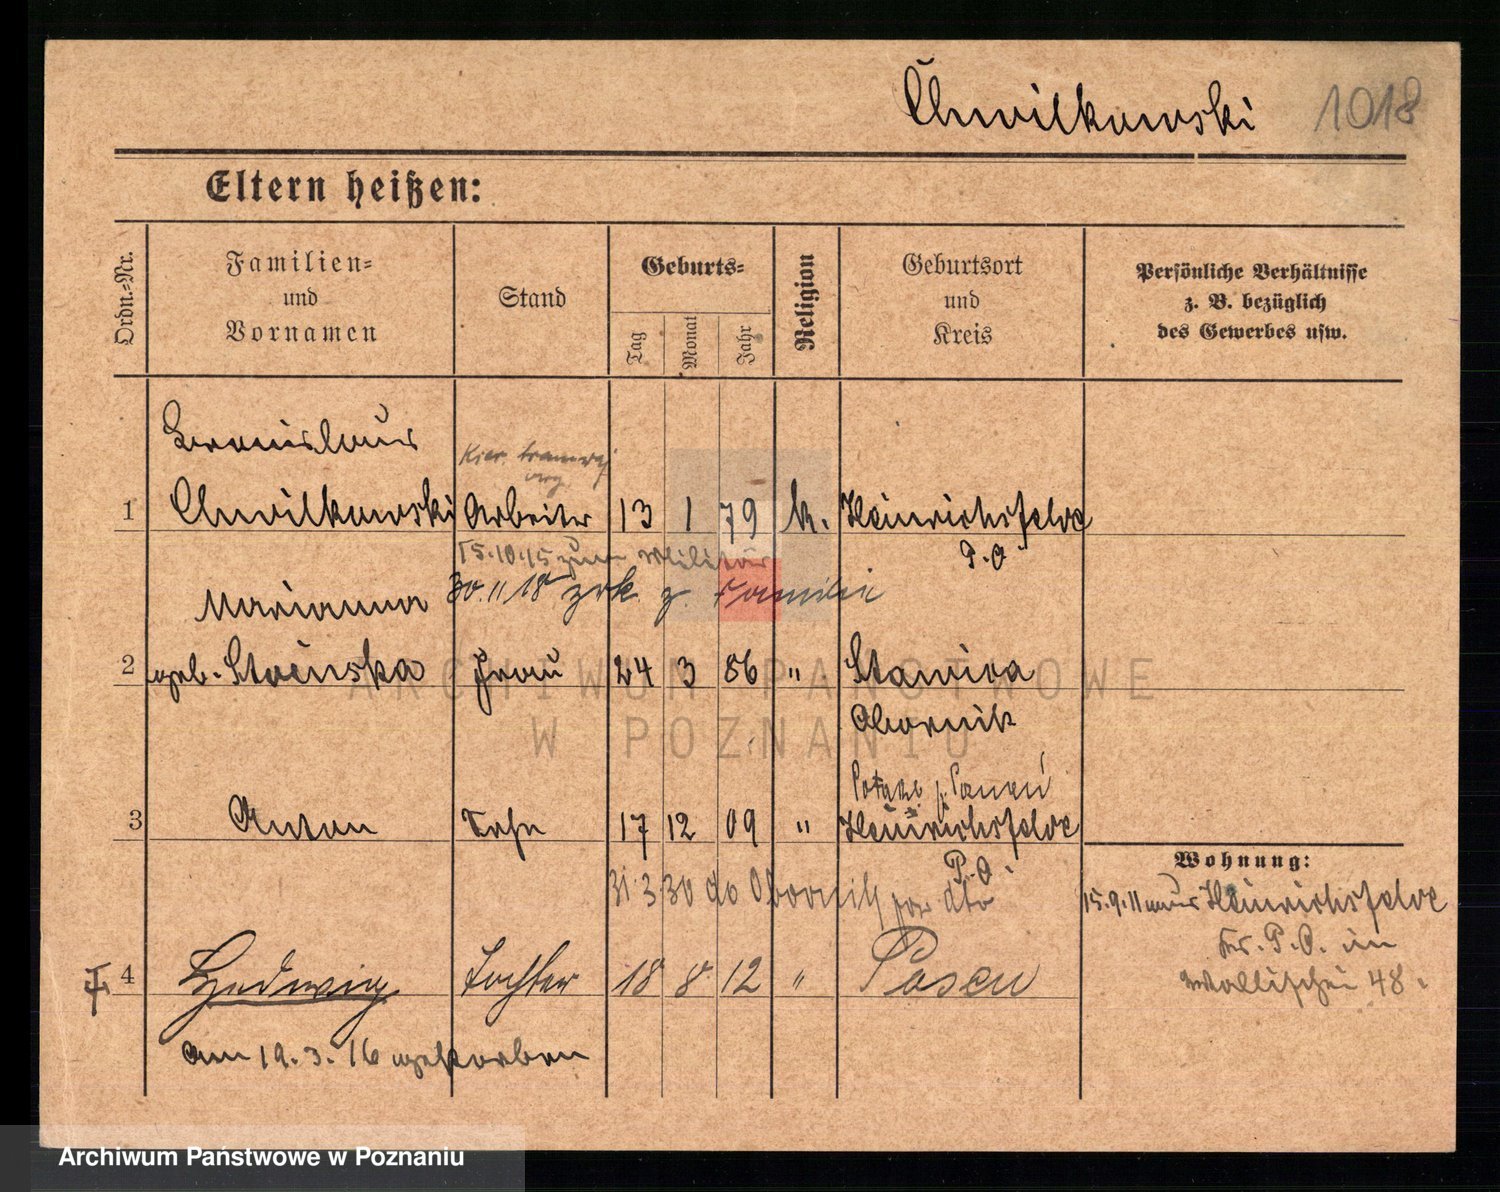 Chwilkowski 1018
Eltern heißen:
Ordn.-Nr.
Familien-
und
Vornamen
Stand
Geburts-
Tag
Monat
Jahr
Religion
Geburtsort
und
Kreis
Persönliche Verhältnisse
z. B. bezüglich
des Gewerbes usw.
Bronislaus
Kier. tramwaj
1 Chwilkowski Arbeiter 13 1 79 k. Heinrichsfelde
P. O.
15.10.15 zum Militär
30.11 18 zrk. z. Familie
Marianna
2 geb. Frau 24 3 86 " 
Obornik
3 Anton Sohn 17 12 09 " Heinrichsfelde
P. O.
31.3.30 do Obornik
4 Hedwig Tochter 18 8 12 " Posen
am 19.3.16 gestorben
Wohnung:
15.9.11 aus Heinrichsfelde
Kr. P. O. in
Wallischei 48.
ARCHIWUM PAŃSTWOWE
W POZNANIU
Archiwum Państwowe w Poznaniu